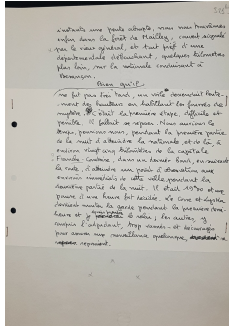 instants une pente abrupte, nous nous trouvâmes
enfin dans la forêt de Mailley, ayant
par le vœu général, et tout près d'une
départementale débouchant, quelques kilomètres
plus loin, sur la nationale conduisant à
Besançon.
Bien qu'il
ne fut pas très tard, un vote
ment des en habillant les fourrés de
mystère. C'était la première étape, difficile et
pénible. Il fallait se reposer. Nous aurions le
temps, pensions-nous, pendant la première partie
de la nuit d'atteindre la nationale et de là à
environ vingt kilomètres de la capitale
Franche-Comtoise, dans un dernier bond, en suivant
la route, d'atteindre un point d'observation aux
environs immédiats de cette ville pendant la
dernière partie de la nuit. Il était 19h00 et une
pause d'une heure fut décidée. Le Corse et
devaient monter la garde pendant la première demi-
heure et à relai, les autres y
compris l'adjudant, trop vannés et découragés
pour assurer une surveillance quelconque,
se reposeraient.